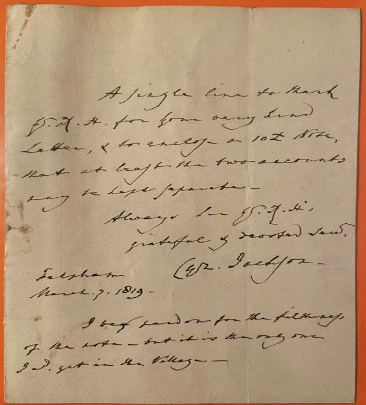 A single line to thank
Yr. R. H. for your very kind
Letter, & to enclose a 10£ Note,
that at least the two accounts
may be kept separate –
Always I am Yr. R. H's,
grateful & devoted Servt.
Cyr. Jackson –
Felpham
March. 7. 1819 –
I beg pardon for the filthiness
of the note – but it is the only one
I cd. get in the Village –